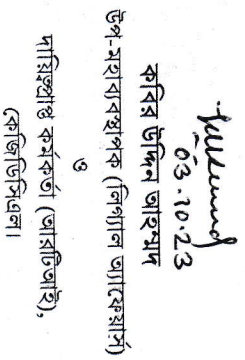 03.10.23
কবির উদ্দিন আহম্মদ
উপ-মহাব্যবস্থাপক (লিগ্যাল অ্যাফেয়ার্স)
ও
দায়িত্বপ্রাপ্ত কর্মকর্তা (আরটিআই),
কেজিডিসিএল।